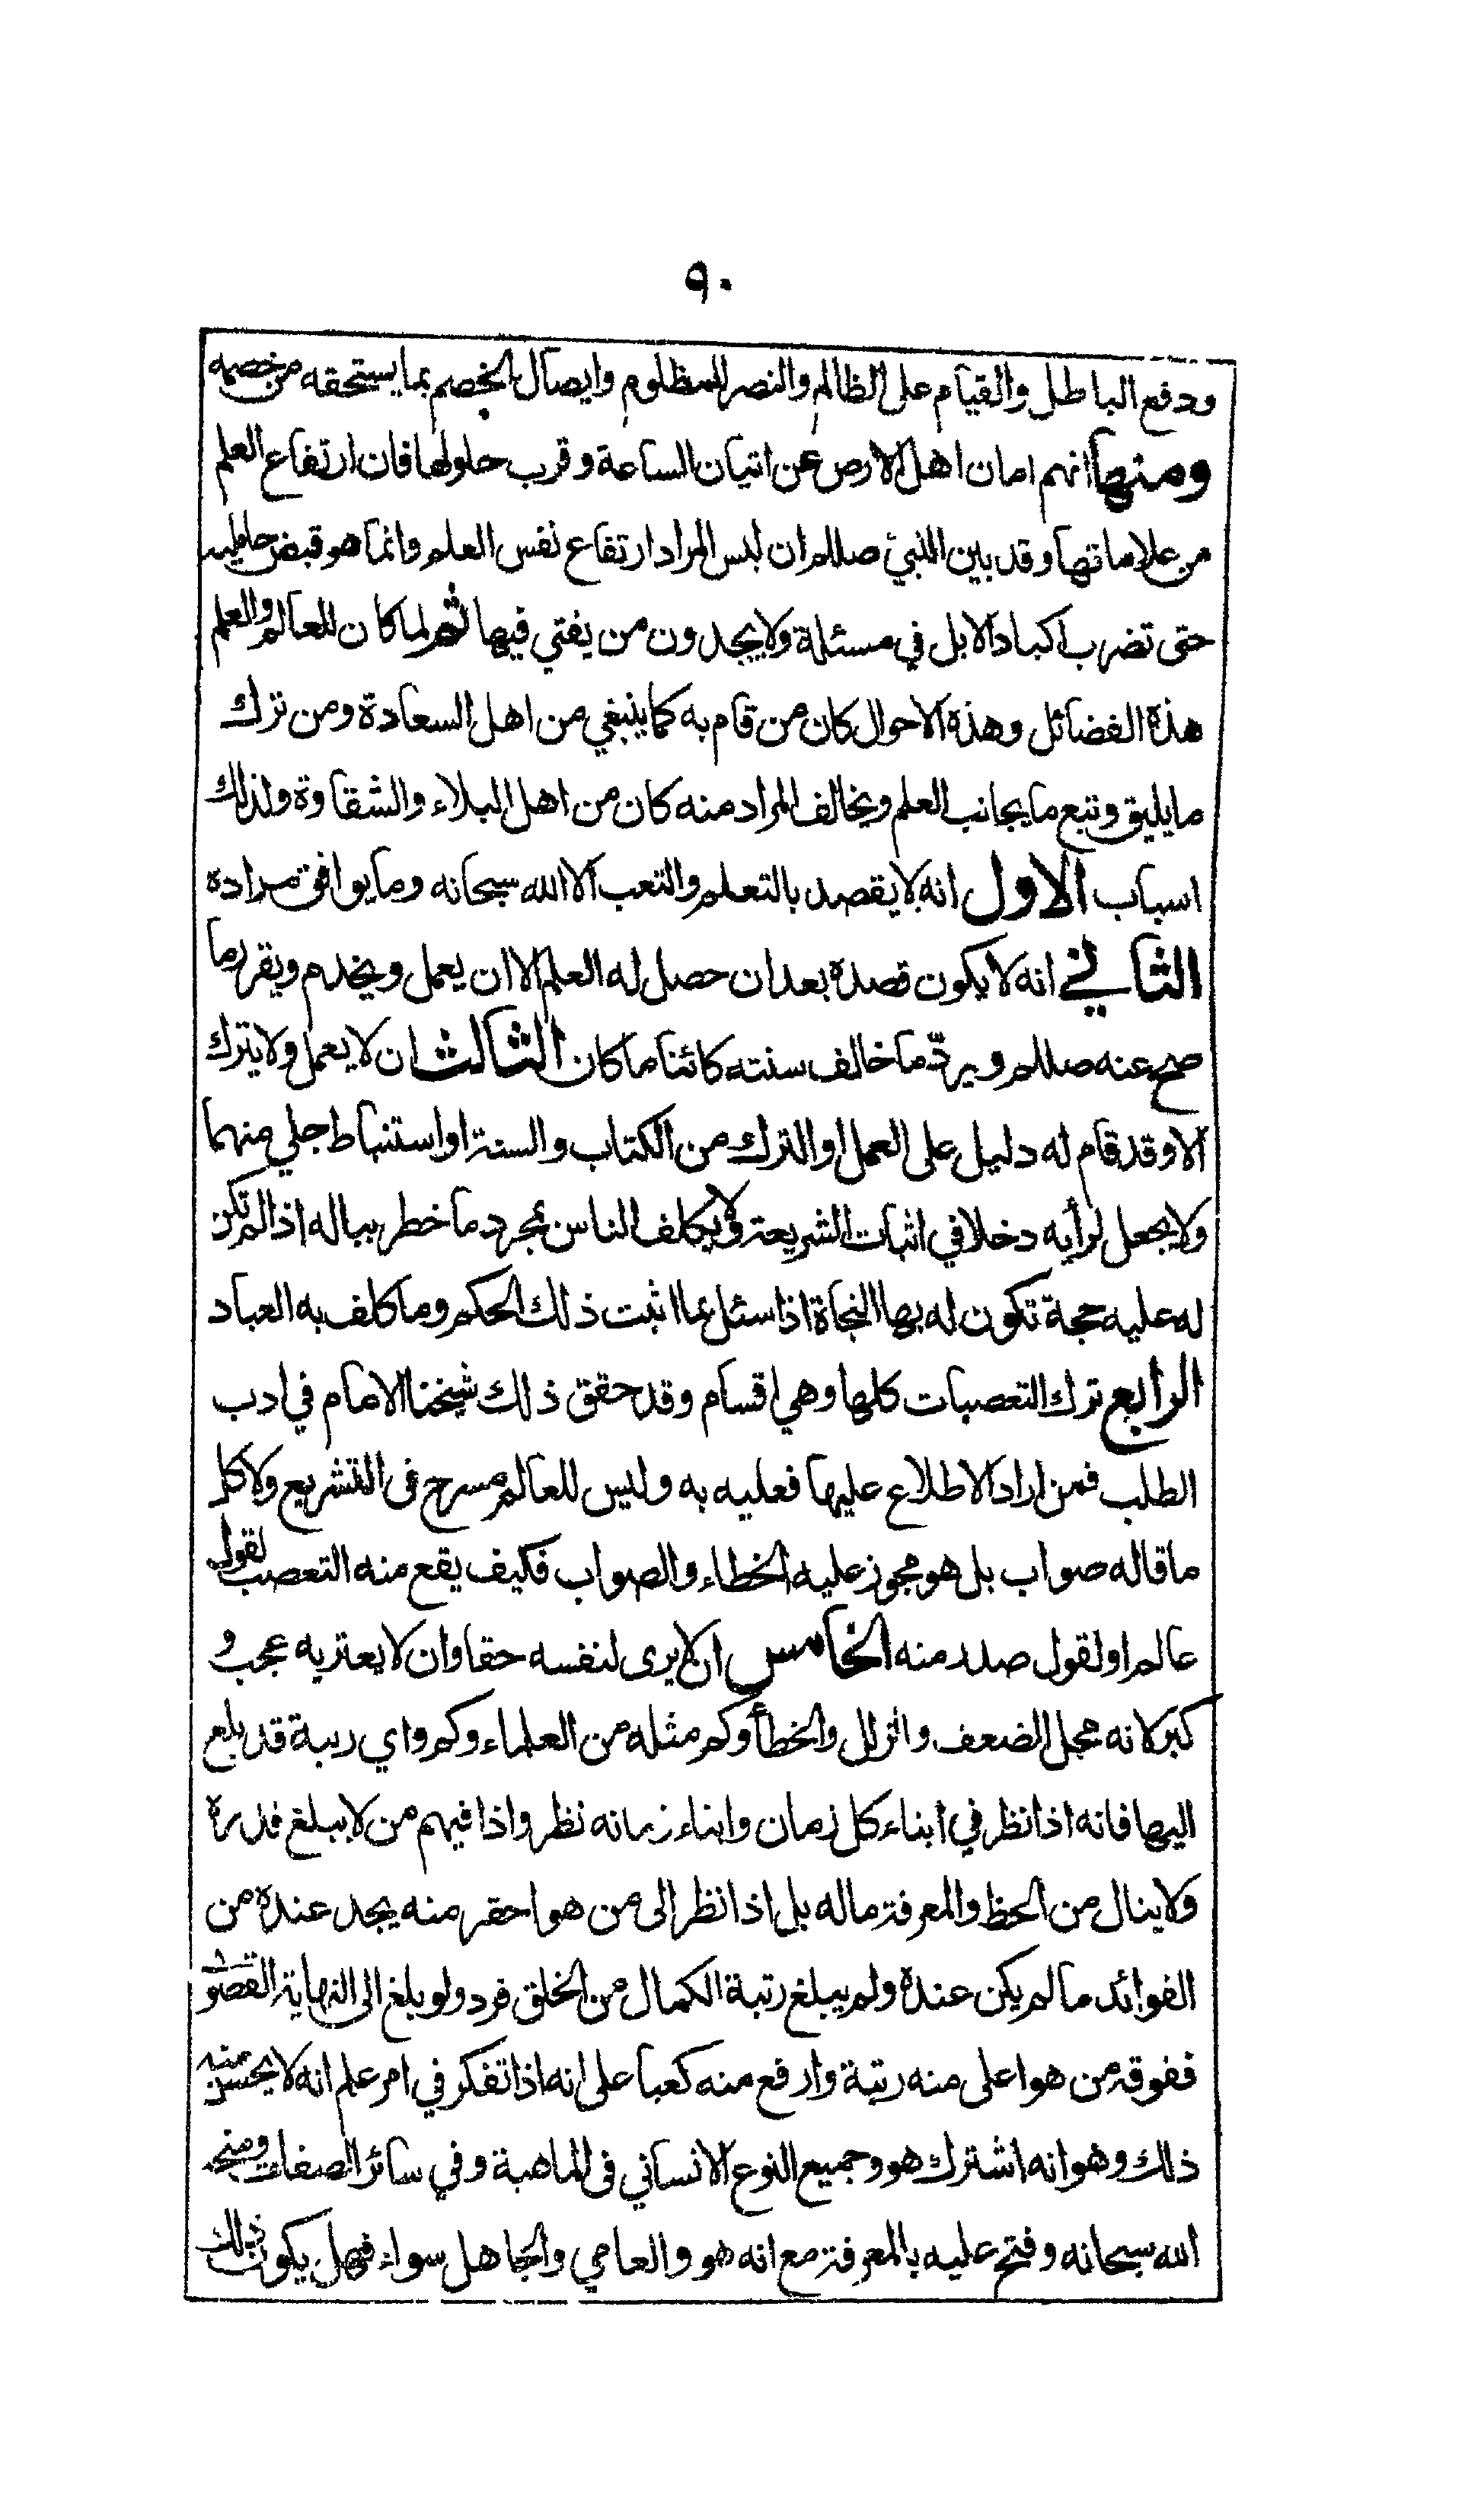 ٩٠
ودفع الباطل والقيام على الظالم والنصر للمظلوم وايصال الخصم بما يستحقه من خصمه
ومنها انهم امان اهل الارض عن اتيان الساعة وقرب حلولها فان ارتفاع العلم
من علاماتها وقد بين النبي صللم ان ليس المراد ارتفاع نفس العلم وانما هو قبض حامليه
حتى تضرب اكباد الابل في مسئلة ولا يجدون من يفتي فيها ثم لما كان للعالم والعلم
هذه الفضائل وهذه الاحوال كان من قام به كما ينبغي من اهل السعادة ومن ترك
ما يليق وتبع ما يجانب العلم ويخالف المراد منه كان من اهل البلاء والشقاوة ولذلك
اسباب الاول انه لا يقصد بالتعلم والتعب الا الله سبحانه وما يوافق مراده
الثاني انه لا يكون قصده بعد ان حصل له العلم الا ان يعمل ويخدم ويقرر ما
صح عنه صللم ويردّ ما خالف سنته كائنا ما كان الثالث ان لا يعمل ولا يترك
الا وقد قام له دليل على العمل او الترك من الكتاب والسنة او استنباط جلي منهما
ولا يجعل لرأيه دخلا في اثبات الشريعة ولا يكلف الناس بمجرد ما خطر بباله اذا لم تكن
له عليه حجة تكون له بها النجاة اذا سئل عما اثبت ذلك الحكم وما كلف به العباد
الرابع ترك التعصبات كلها وهي اقسام وقد حقق ذلك شيخنا الامام في ادب
الطلب فمن اراد الاطلاع عليها فعليه به وليس للعالم مسرح في التشريع ولا كل
ما قاله صواب بل هو مجوز عليه الخطاء والصواب فكيف يقع منه التعصب لقول
عالم او لقول صدر منه الخامس ان لا يرى لنفسه حقا وان لا يعتريه عجب و
كبر لانه محل الضعف والزلل والخطأ وكم مثله من العلماء وكم واي رتبة قد بلغ
اليها فانه اذا نظر في ابناء كل زمان وابناء زمانه نظر واذا فيهم من لا يبلغ قدره
ولا ينال من الحظ والمعرفة ماله بل اذا نظر الى من هو احقر منه يجد عنده من
الفوائد ما لم يكن عنده ولم يبلغ رتبة الكمال من الخلق فرد ولو بلغ الى النهاية القصو
ففوقه من هو اعلى منه رتبة وارفع منه كعبا على انه اذا تفكر في امر علم انه لا يحسن منه
ذلك وهو انه اشترك هو وجميع النوع الانساني في الماهية وفي سائر الصفات ومنحه
الله سبحانه وفتح عليه بالمعرفة مع انه هو والعامي والجاهل سواء فهل يكون ذلك